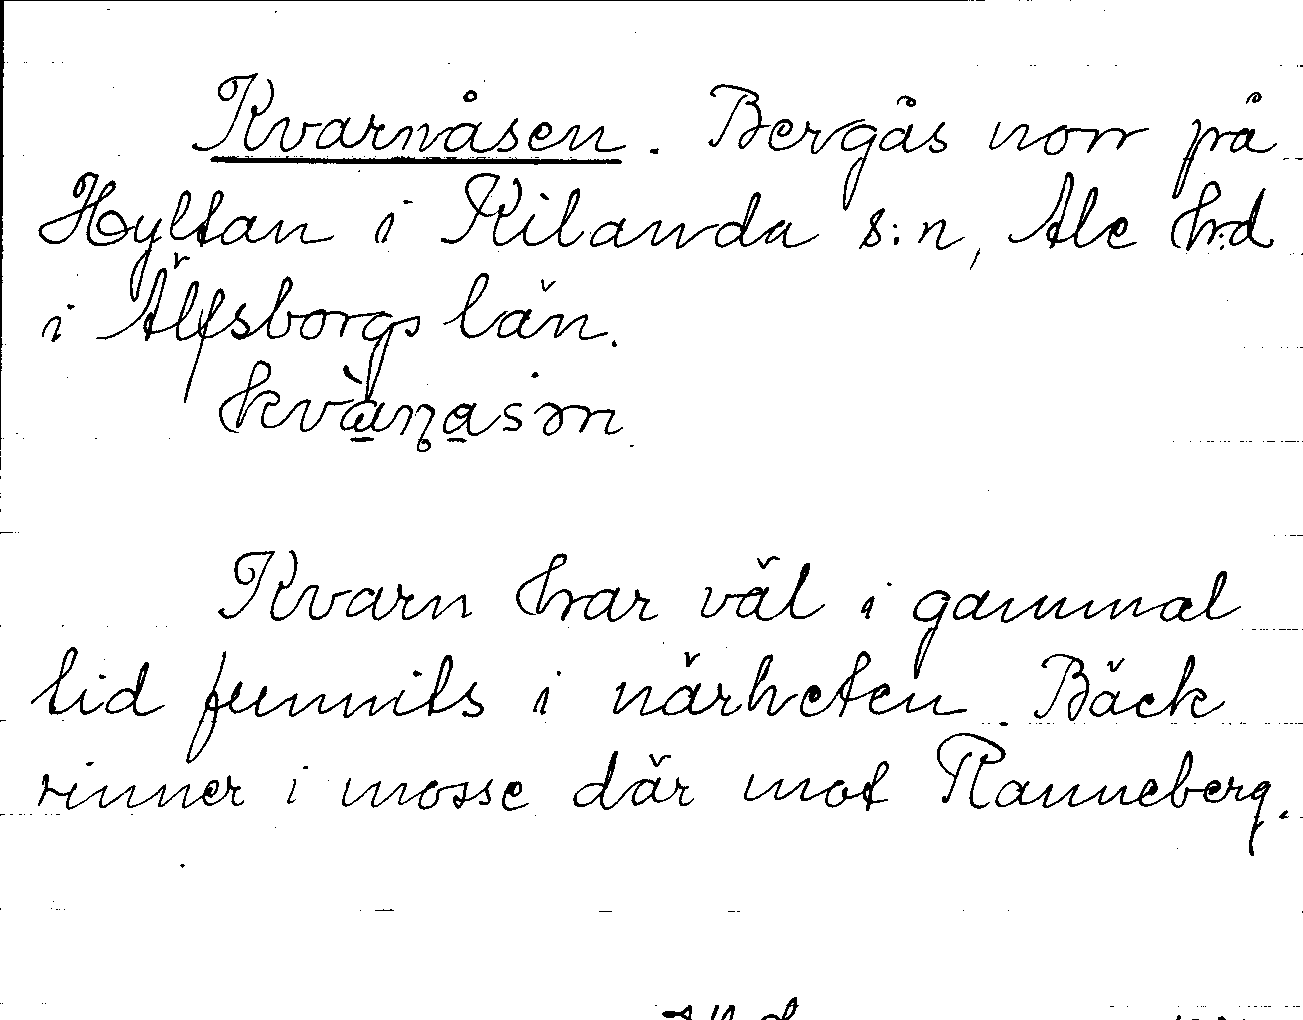 Kvarnåsen. Bergås norr på
Hyltan i Kilanda s:n, Ale hd
i Älfsborgs län.
kvànasən
Kvarn har väl i gammal
tid funnits i närheten. Bäck
rinner i mosse där mot Ranneberg.